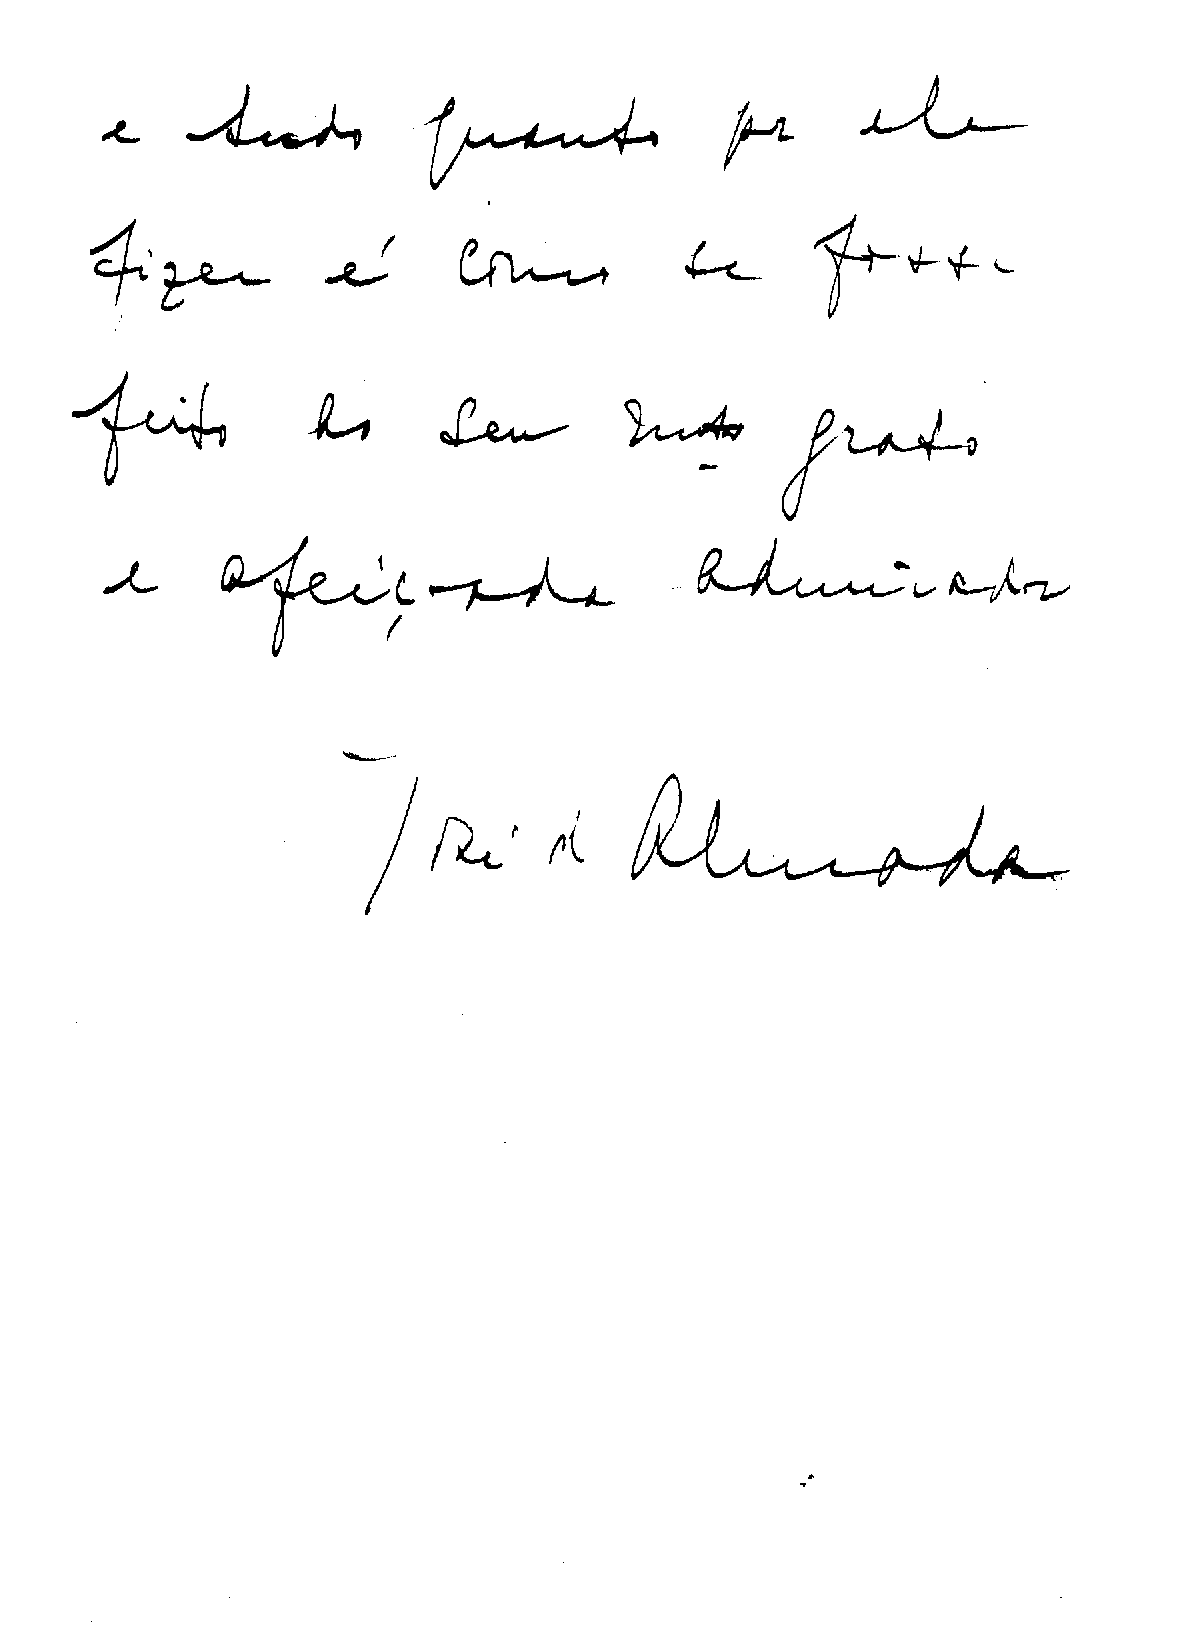 e tudo quanto por ele
fizer é como se fosse
feito ao seu mto grato
e afeiçoado admirador
José de Almada